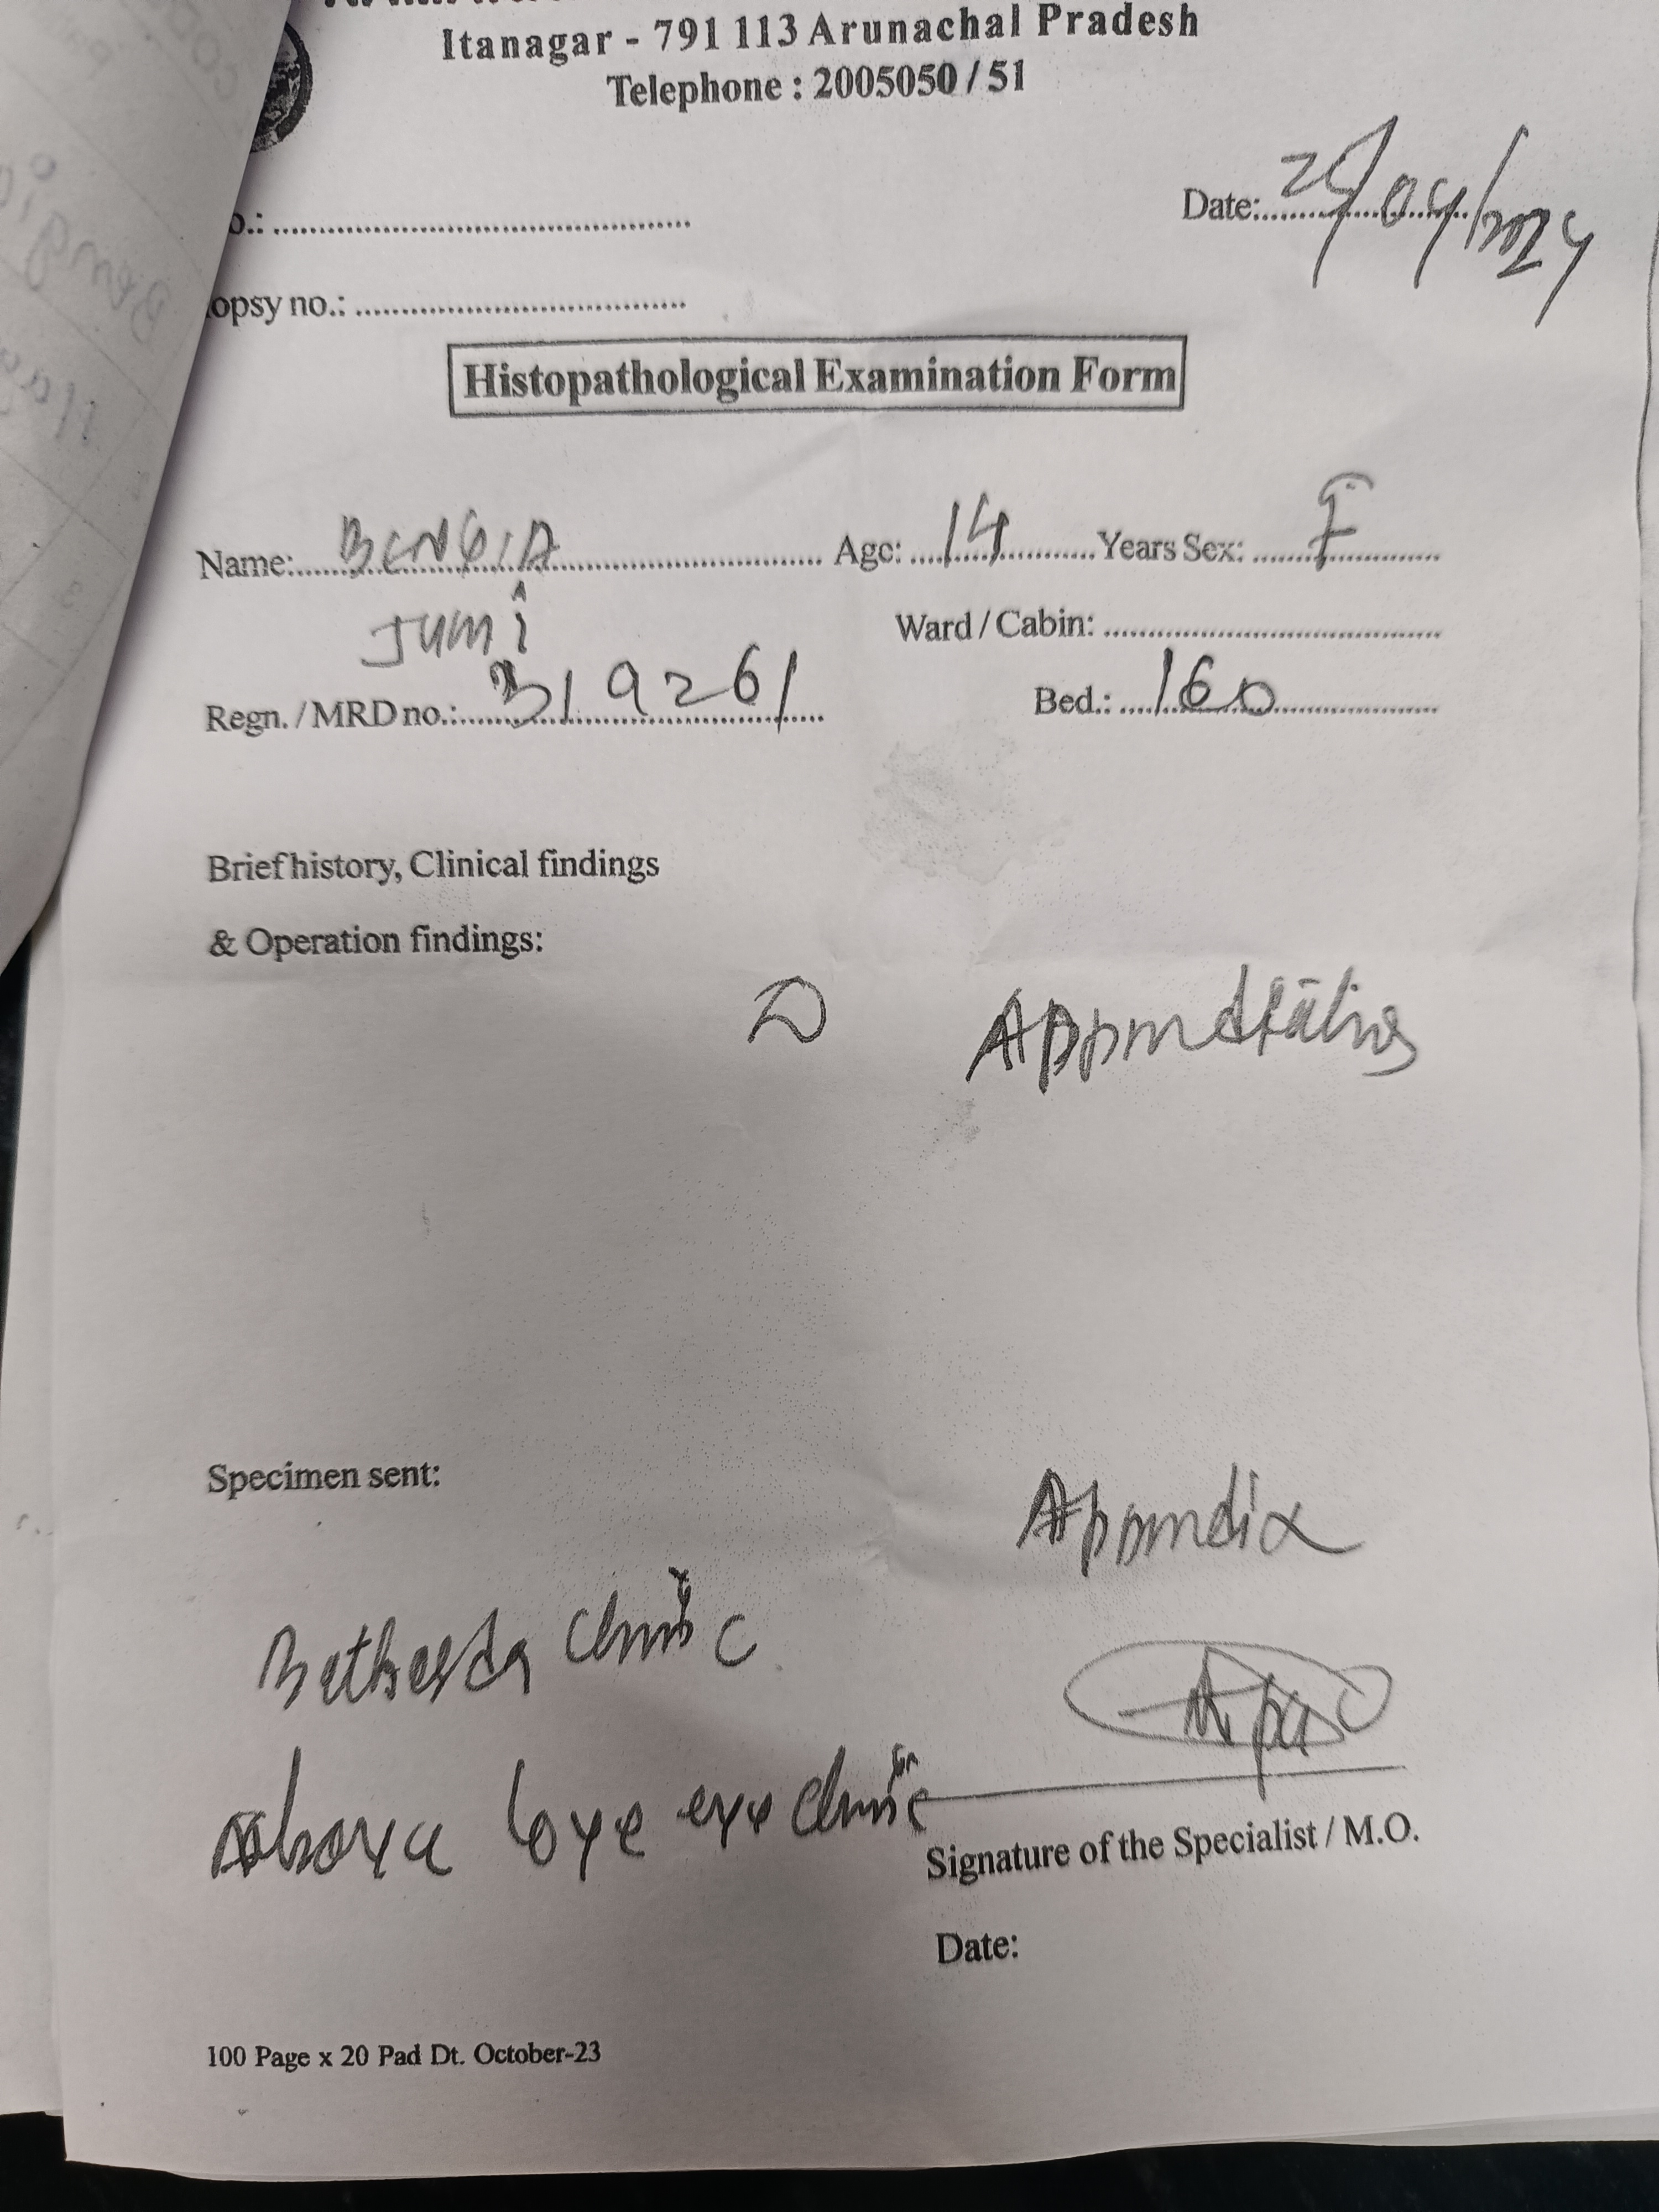 Itanagar - 791 113 Arunachal Pradesh
Telephone : 2005050 / 51
Date:
opsy no.:
Histopathological Examination Form
Name: BENGIA Age: 14 Years Sex: F
JUMI
Ward / Cabin:
Regn. / MRD no.: 319261 Bed.: 160
Brief history, Clinical findings
& Operation findings:
Specimen sent: Appendix
Bethesda clinic
above eye clinic
Signature of the Specialist / M.O.
Date:
100 Page x 20 Pad Dt. October-23